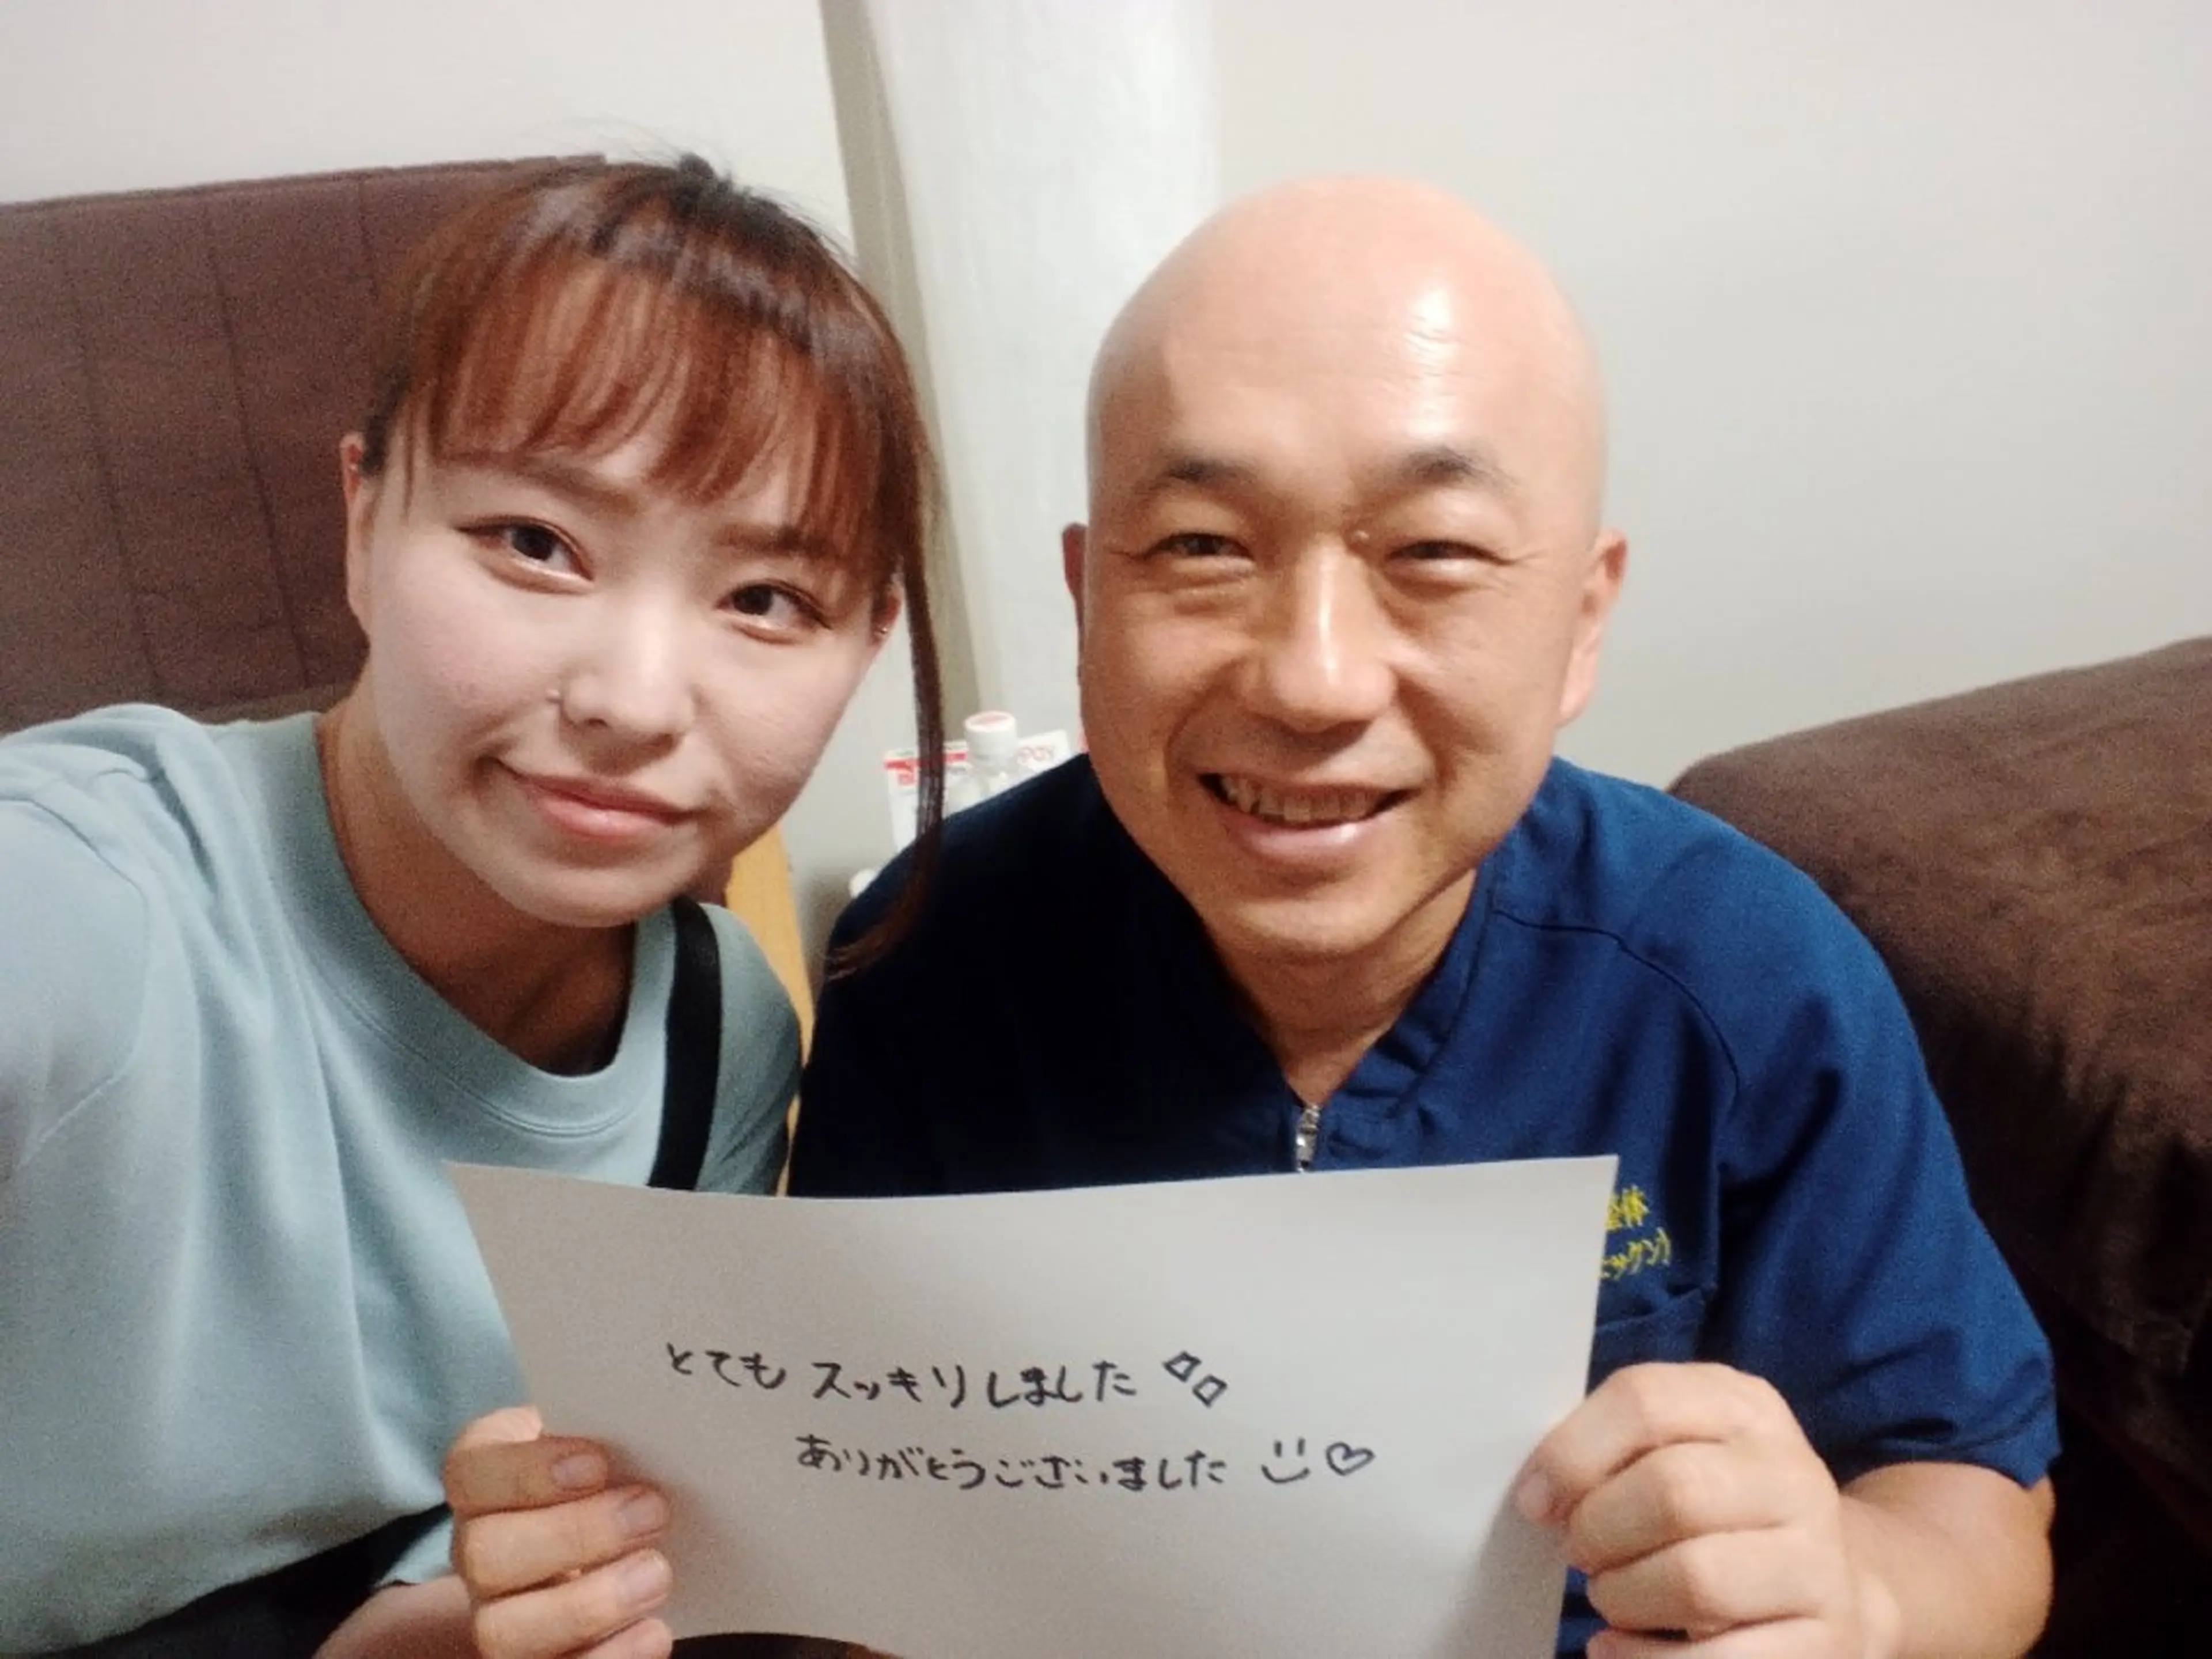 とても スッキリしました
ありがとうございました
整体
Pay